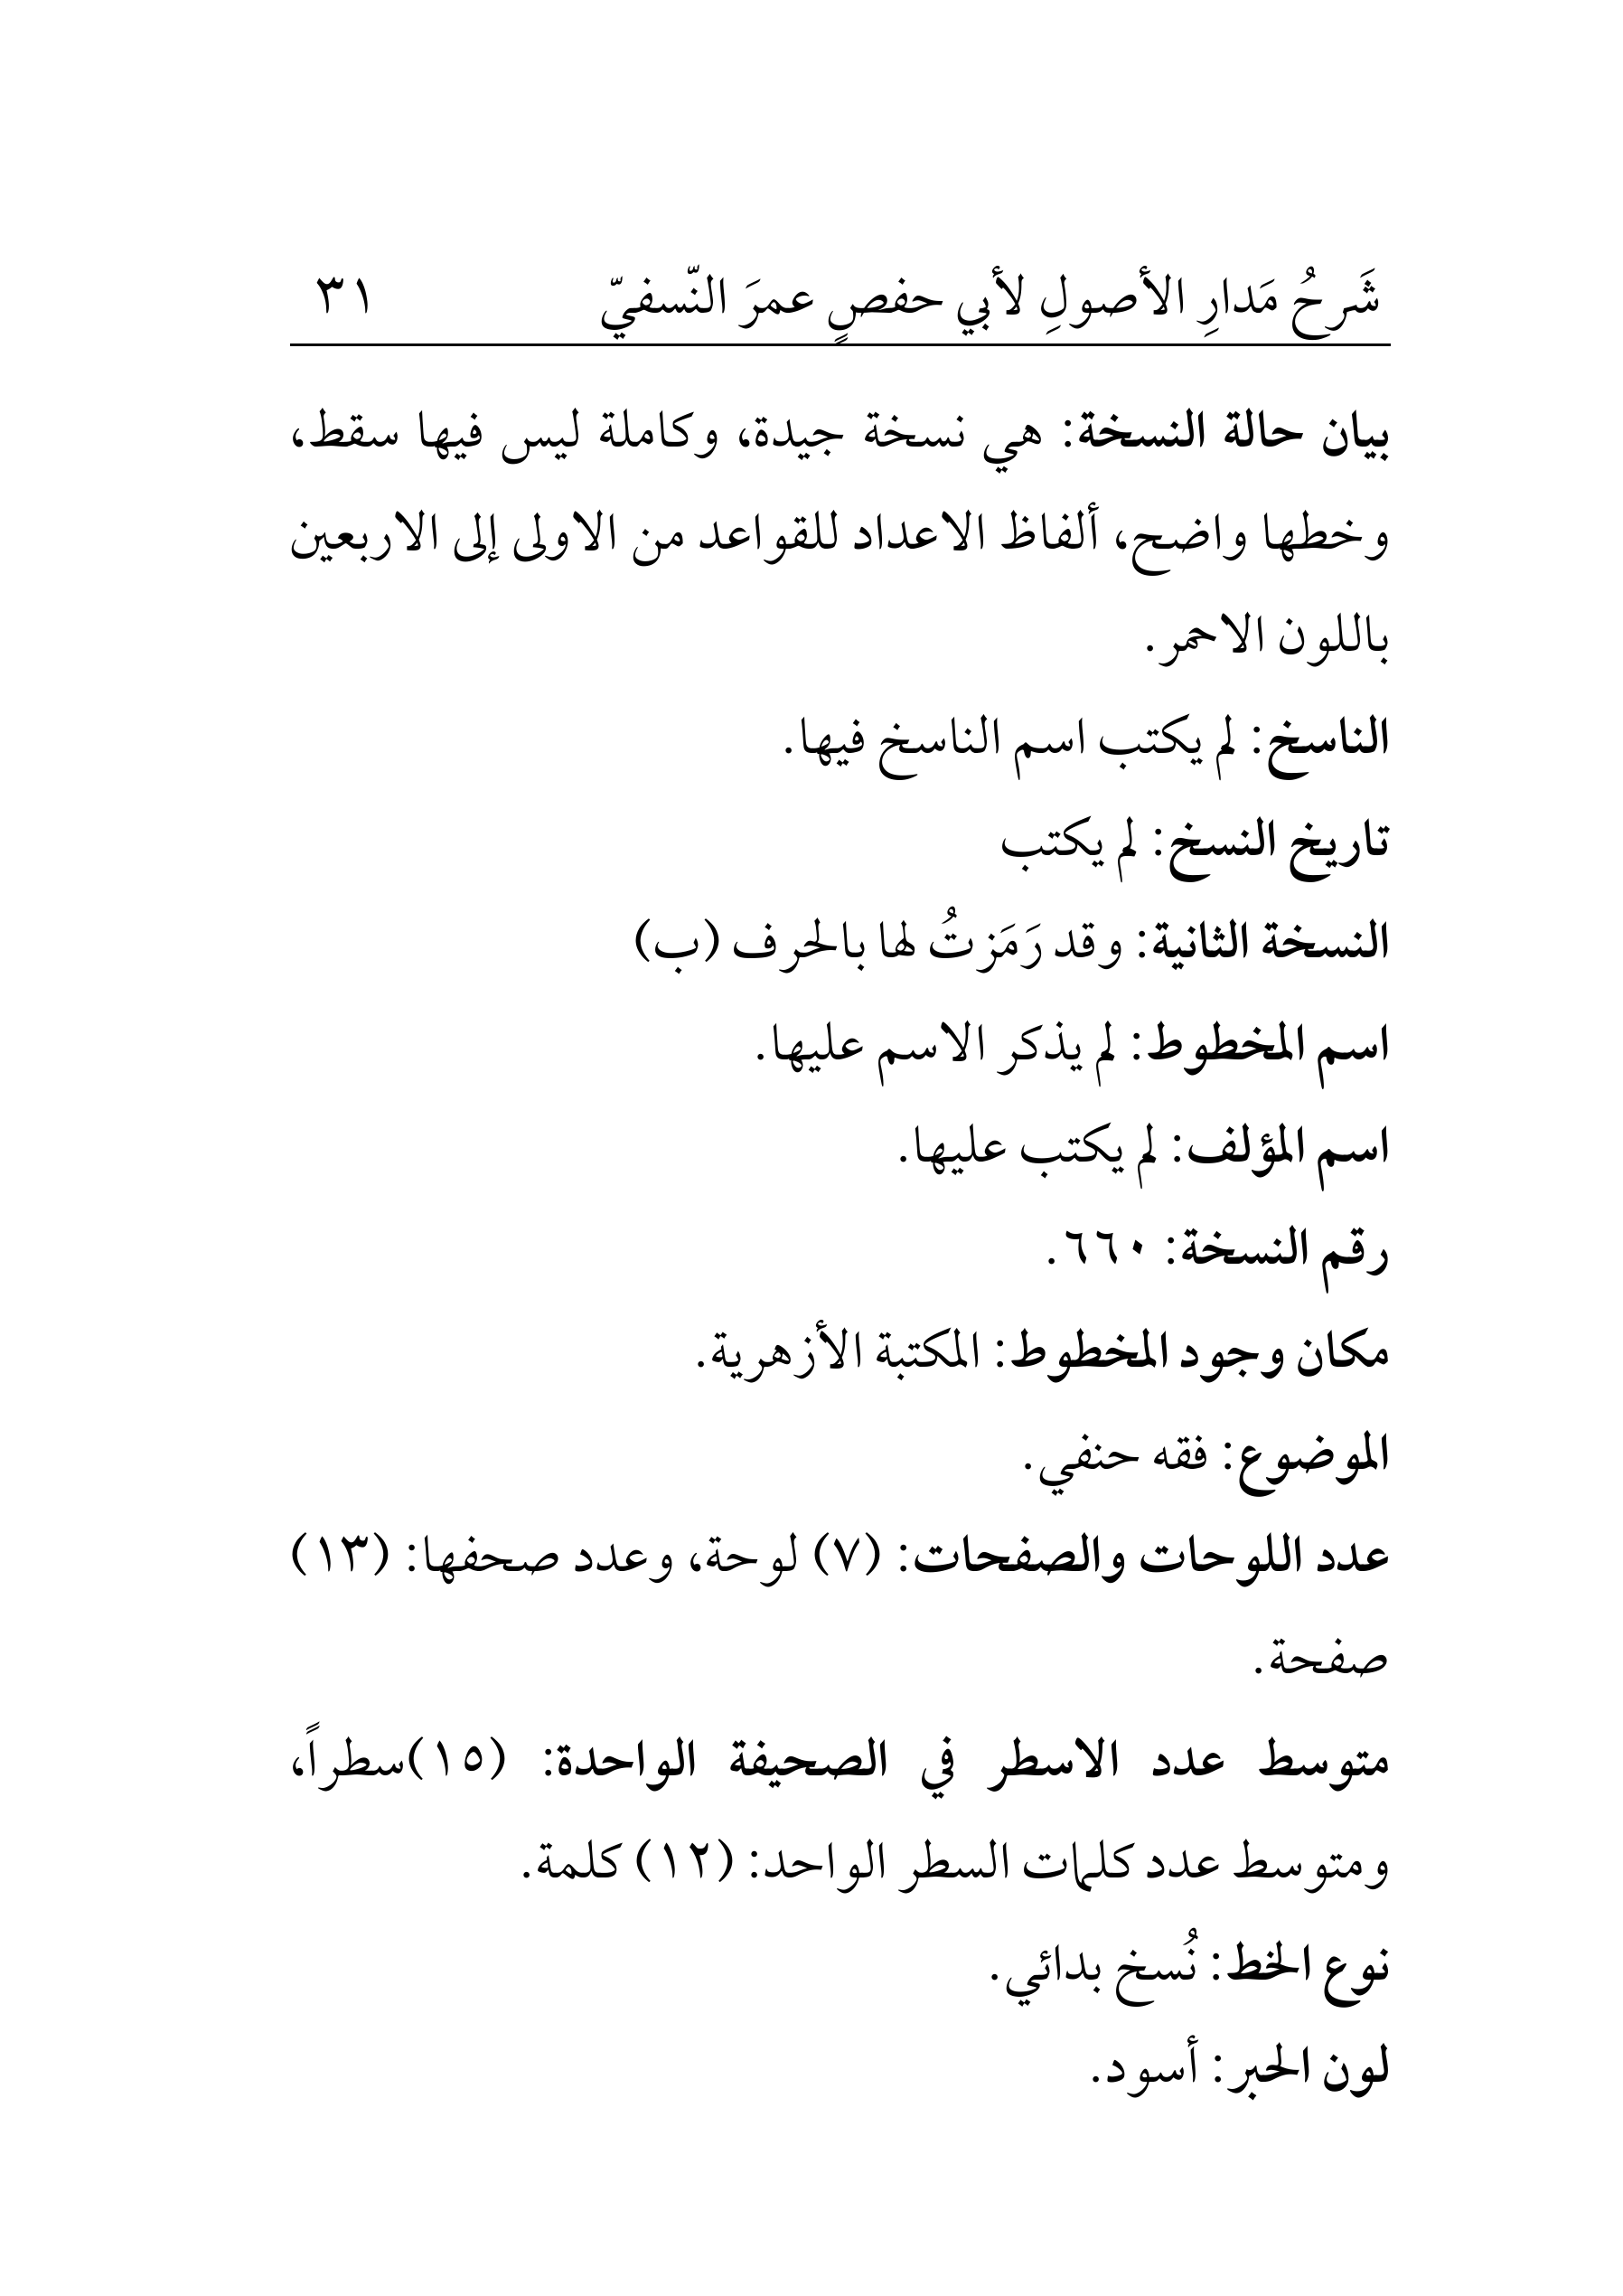 شَرحُ مَدارِ الأصولِ لأبي حفصٍ عمرَ النّسفيّ ٣١
بيان حالة النسخة: هي نسخة جيدة، وكاملة ليس فيها سقط،
وخطها واضح، ألفاظ الاعداد للقواعد من الاولى إلى الاربعين
باللون الاحمر.
الناسخ: لم يكتب اسم الناسخ فيها.
تاريخ النسخ: لم يكتب
النسخة الثانية: وقد رَمَزتُ لها بالحرف (ب)
اسم المخطوط: لم يذكر الاسم عليها.
اسم المؤلف: لم يكتب عليها.
رقم النسخة: ٦٦٠.
مكان وجود المخطوط: المكتبة الأزهرية.
الموضوع: فقه حنفي.
عدد اللوحات والصفحات: (٧) لوحة، وعدد صحفها: (١٣)
صفحة.
متوسط عدد الاسطر في الصحيفة الواحدة: (١٥)سطراً،
ومتوسط عدد كلمات السطر الواحد: (١٢) كلمة.
نوع الخط: نُسخ بدائي.
لون الحبر: أسود.